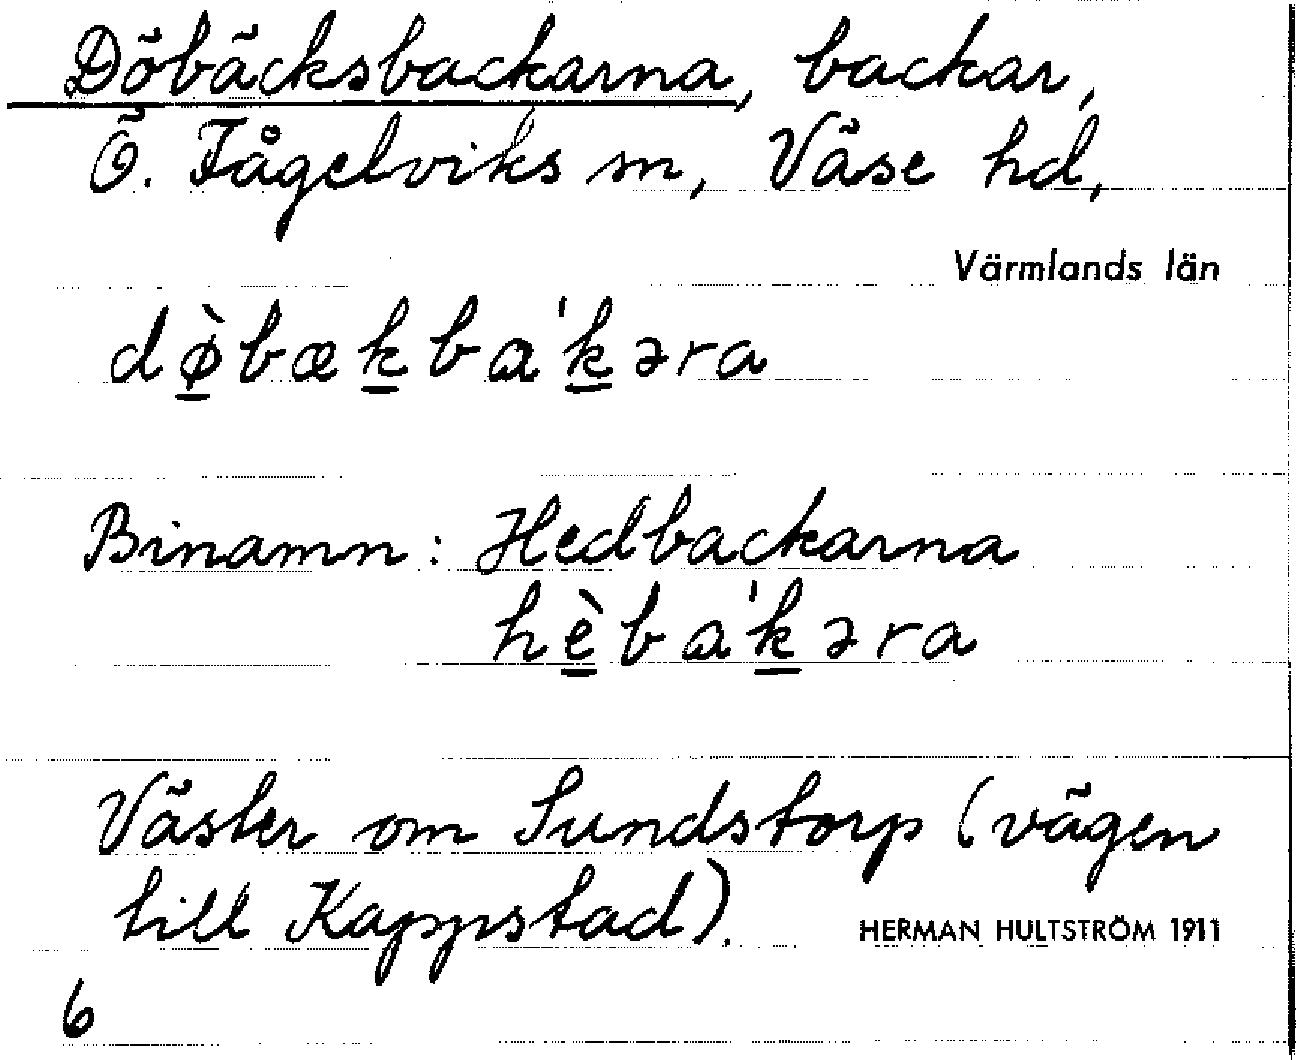 Döbäcksbackarna, backar,
Ö. Fågelviks sn, Väse hd,
Värmlands län
dø̲̀bæk̲ba'k̲əra
Binamn: Hedbackarna
hè̲ba'k̲əra
Väster om Sundstorp (vägen
till Kappstad).
HERMAN HULTSTRÖM 1911
6